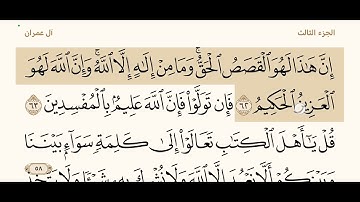 الجزء الثالث
آل عمران
إِنَّ هَٰذَا لَهُوَ ٱلْقَصَصُ ٱلْحَقُّ ۚ وَمَا مِنْ إِلَٰهٍ إِلَّا ٱللَّهُ ۚ وَإِنَّ ٱللَّهَ لَهُوَ
ٱلْعَزِيزُ ٱلْحَكِيمُ ٦٢ فَإِن تَوَلَّوْا۟ فَإِنَّ ٱللَّهَ عَلِيمٌۢ بِٱلْمُفْسِدِينَ ٦٣
قُلْ يَٰٓأَهْلَ ٱلْكِتَٰبِ تَعَالَوْا۟ إِلَىٰ كَلِمَةٍ سَوَآءٍۭ بَيْنَنَا
٥٨
وَبَيْنَكُمْ أَلَّا نَعْبُدَ إِلَّا ٱللَّهَ وَلَا نُشْرِكَ بِهِۦ شَيْـًٔا وَلَا يَتَّخِذَ